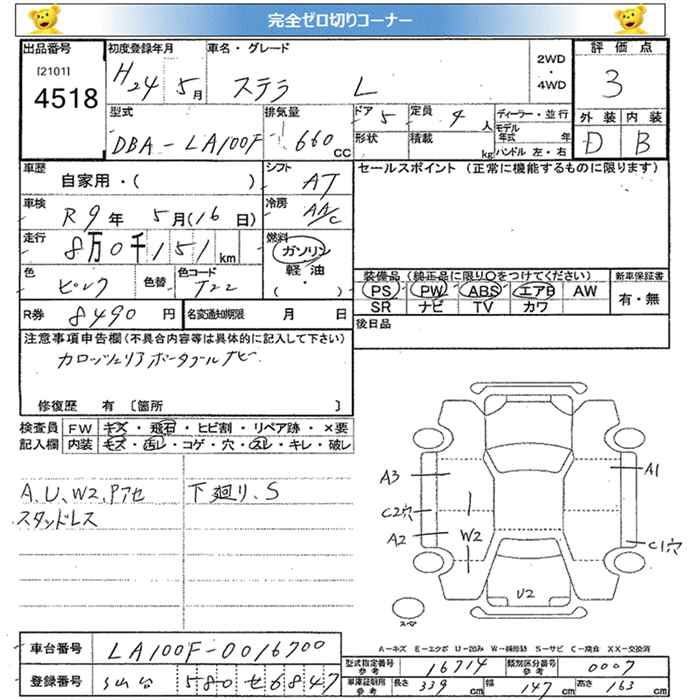 完全ゼロ切りコーナー
出品番号 初度登録年月 車名・グレード 評価点
[2101] 4518 H24 5月 ステラ L 2WD・4WD 3
型式 排気量 ドア 定員 ディーラー・並行 外装 内装
DBA-LA100F 660CC 5 4人 モデル年式 年 D B
形状 積載 kg ハンドル 左・右
車歴 シフト セールスポイント(正常に機能するものに限ります)
自家用・( ) AT
車検 冷房
R9年 5月(16日) AA/C
走行 燃料
8万0千151km ガソリン
軽・油
色 色替 色コード ・
ピンク T22 ( )
装備品(純正品に限り○をつけてください) 新車保証書
PS PW ABS エアB AW 有・無
SR ナビ TV カワ
R券 8490円 名変通知期限 月 日 後日品
注意事項申告欄(不具合内容等は具体的に記入して下さい)
カロッツェリアポータブルナビ
修復歴 有〔箇所 〕
検査員 FW キズ・飛石・ヒビ割・リペア跡・×要
記入欄 内装 キズ・汚レ・コゲ・穴・スレ・キレ・破レ
A、U、W2、Pアセ 下廻り、S
スタッドレス
A3 A1
C2穴
A2 W2 C1穴
U2
スペア
A-キズ E-エクボ U-凹み W-補修跡 S-サビ C-腐食 XX-交換済
車台番号 LA100F-0016700
型式指定番号 参考 16714 類別区分番号 参考 0007
登録番号 580 せ6847
車庫証明用 参考 長さ 339cm 幅 147cm 高さ 163cm